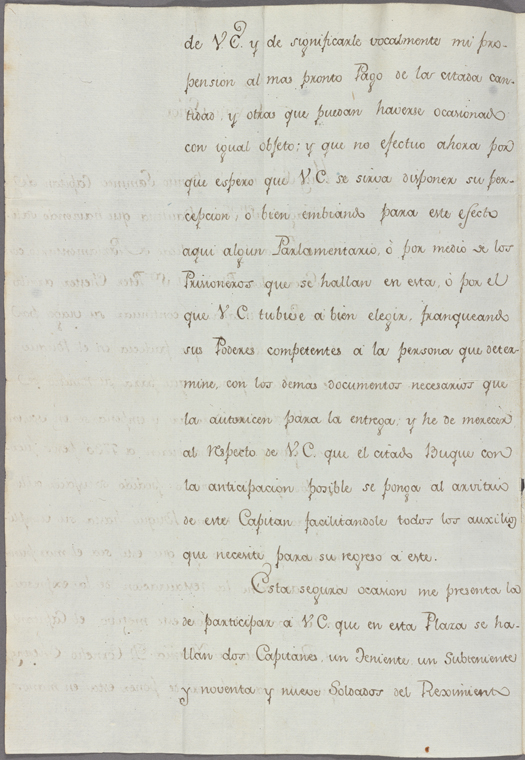 de V.E. y de significarle vocalmente mi pro-
pension al mas pronto Pago de la citada can-
tidad, y otras que puedan haverse ocasionado
con igual objeto; y que no efectuo ahora por
que espero que V.E. se sirva disponer su per-
cepcion, ó bien embiando para este efecto
aqui algun Parlamentario, ó por medio de los
Prisioneros que se hallan en esta, ó por el
que V.E. tubiere a bien elegir, franqueando
sus Poderes competentes á la persona que deter-
mine, con los demas documentos necesarios que
la autoricen para la entrega; y he de merecer
al respecto de V.E. que el citado Buque con
la anticipacion posible se ponga al arvitrio
de este Capitan facilitandole todos los auxilios
que necesite para su regreso á este.
Esta segura ocasion me presenta la
de participar á V.E. que en esta Plaza se ha-
llan dos Capitanes, un Teniente un Subteniente
y noventa y nueve Soldados del Reximiento